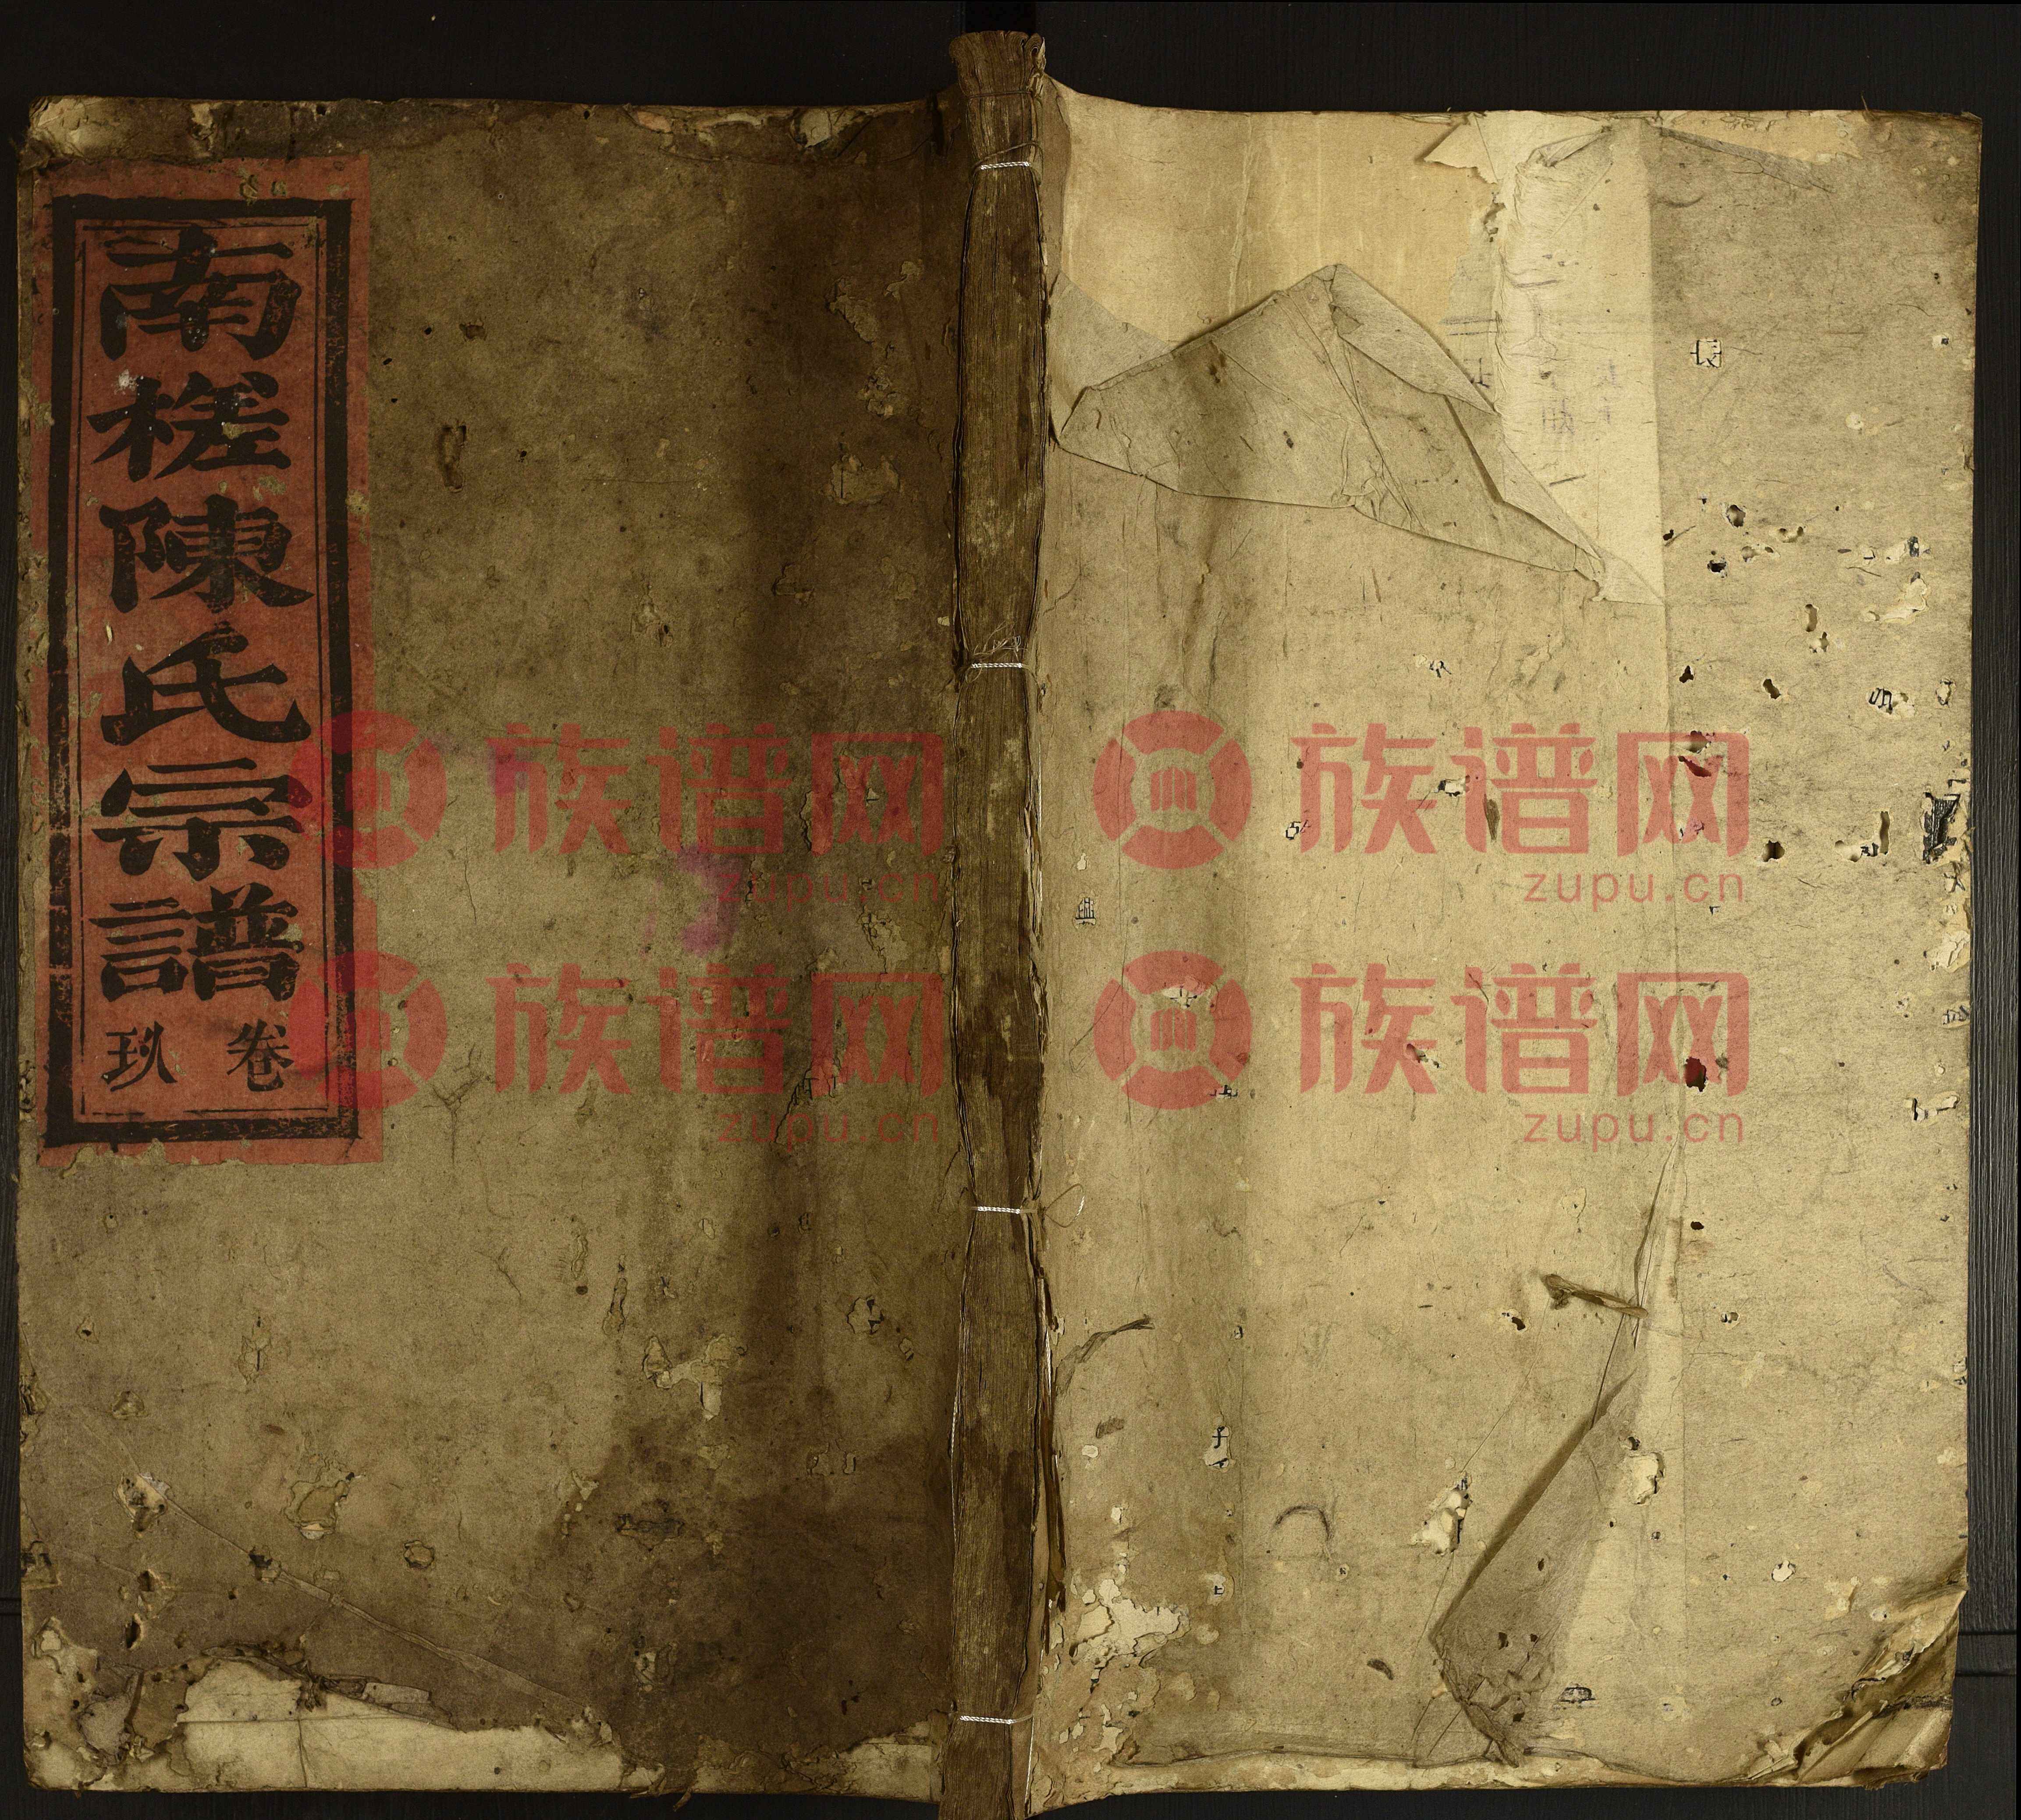 南槎陳氏宗譜
卷玖
族谱网
zupu.cn
族谱网
zupu.cn
族谱网
zupu.cn
族谱网
zupu.cn